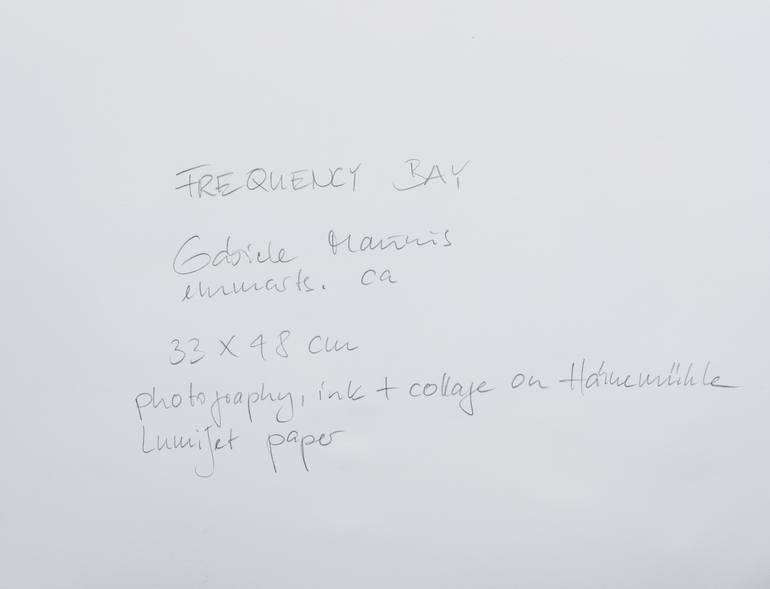 FREQUENCY BAY
Gabriele
33 x 48 cm
photography, ink + collage on Hahnemühle
LumiJet paper